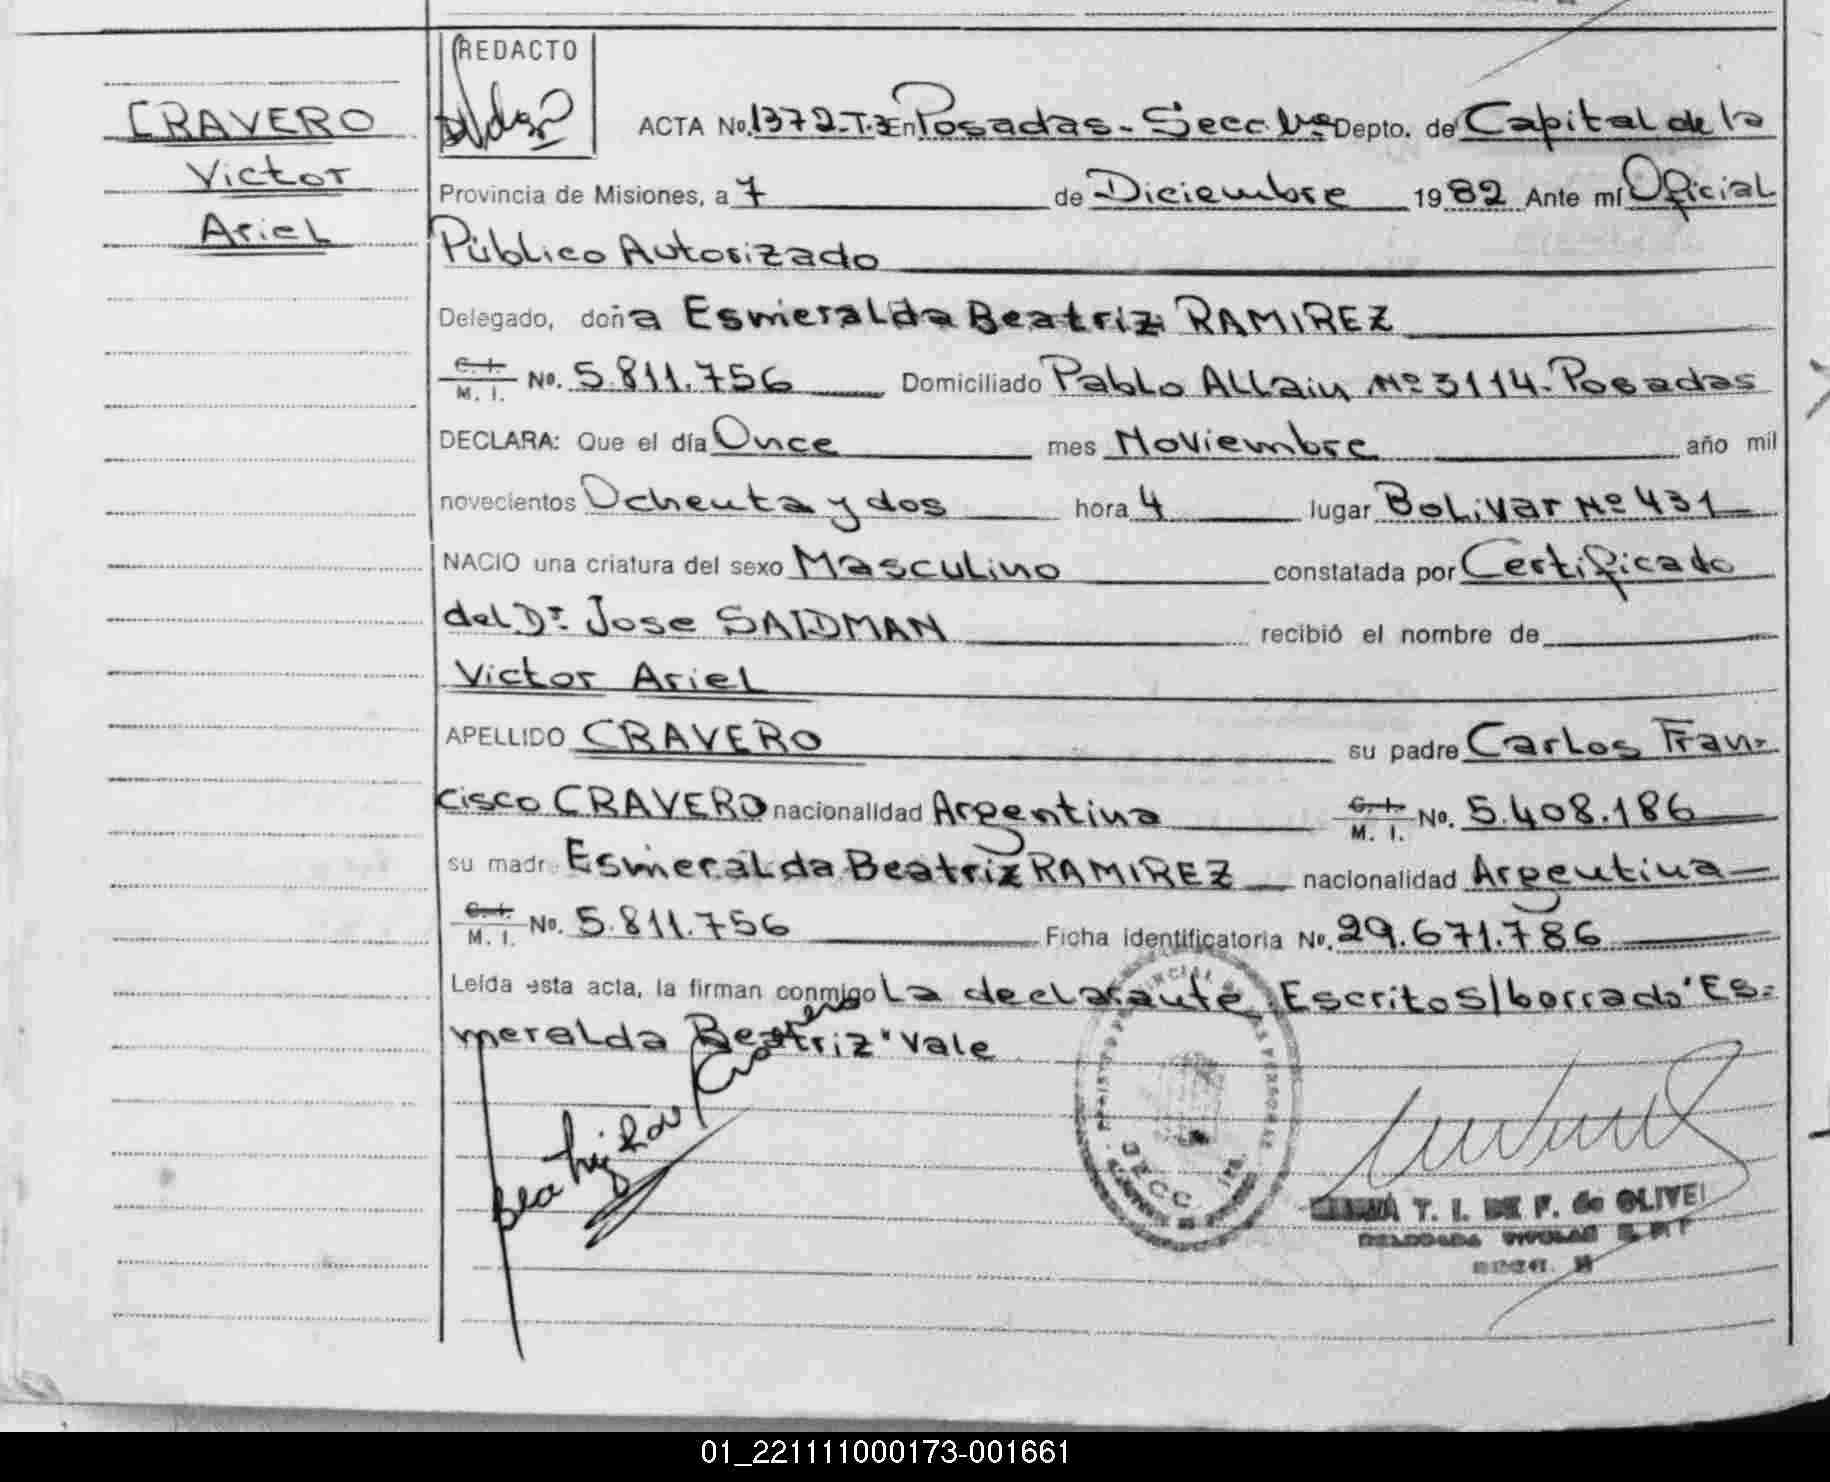 CRAVERO
Victor
Ariel
REDACTO
ACTA No. 1372-T.3 En Posadas - Secc. 1ª Depto. de Capital de la
Provincia de Misiones, a 7 de Diciembre 1982 Ante mí Oficial
Público Autorizado
Delegado, doña Esmeralda Beatriz RAMIREZ
C. I. / M. I. No. 5.811.756 Domiciliado Pablo Allain Nº 3114 - Posadas
DECLARA: Que el día Once mes Noviembre año mil
novecientos Ochenta y dos hora 4 lugar Bolivar Nº 431
NACIO una criatura del sexo Masculino constatada por Certificado
del Dr. Jose SAIDMAN recibió el nombre de
Victor Ariel
APELLIDO CRAVERO su padre Carlos Fran-
cisco CRAVERO nacionalidad Argentina C. I. / M. I. No. 5.408.186
su madre Esmeralda Beatriz RAMIREZ nacionalidad Argentina
C. I. / M. I. No. 5.811.756 Ficha identificatoria No. 29.671.786
Leída esta acta, la firman conmigo La declarante Escritos/borrado "Es-
meralda Beatriz" Vale
SECC.
T. I. DE F. de OLIVEI
01_221111000173-001661